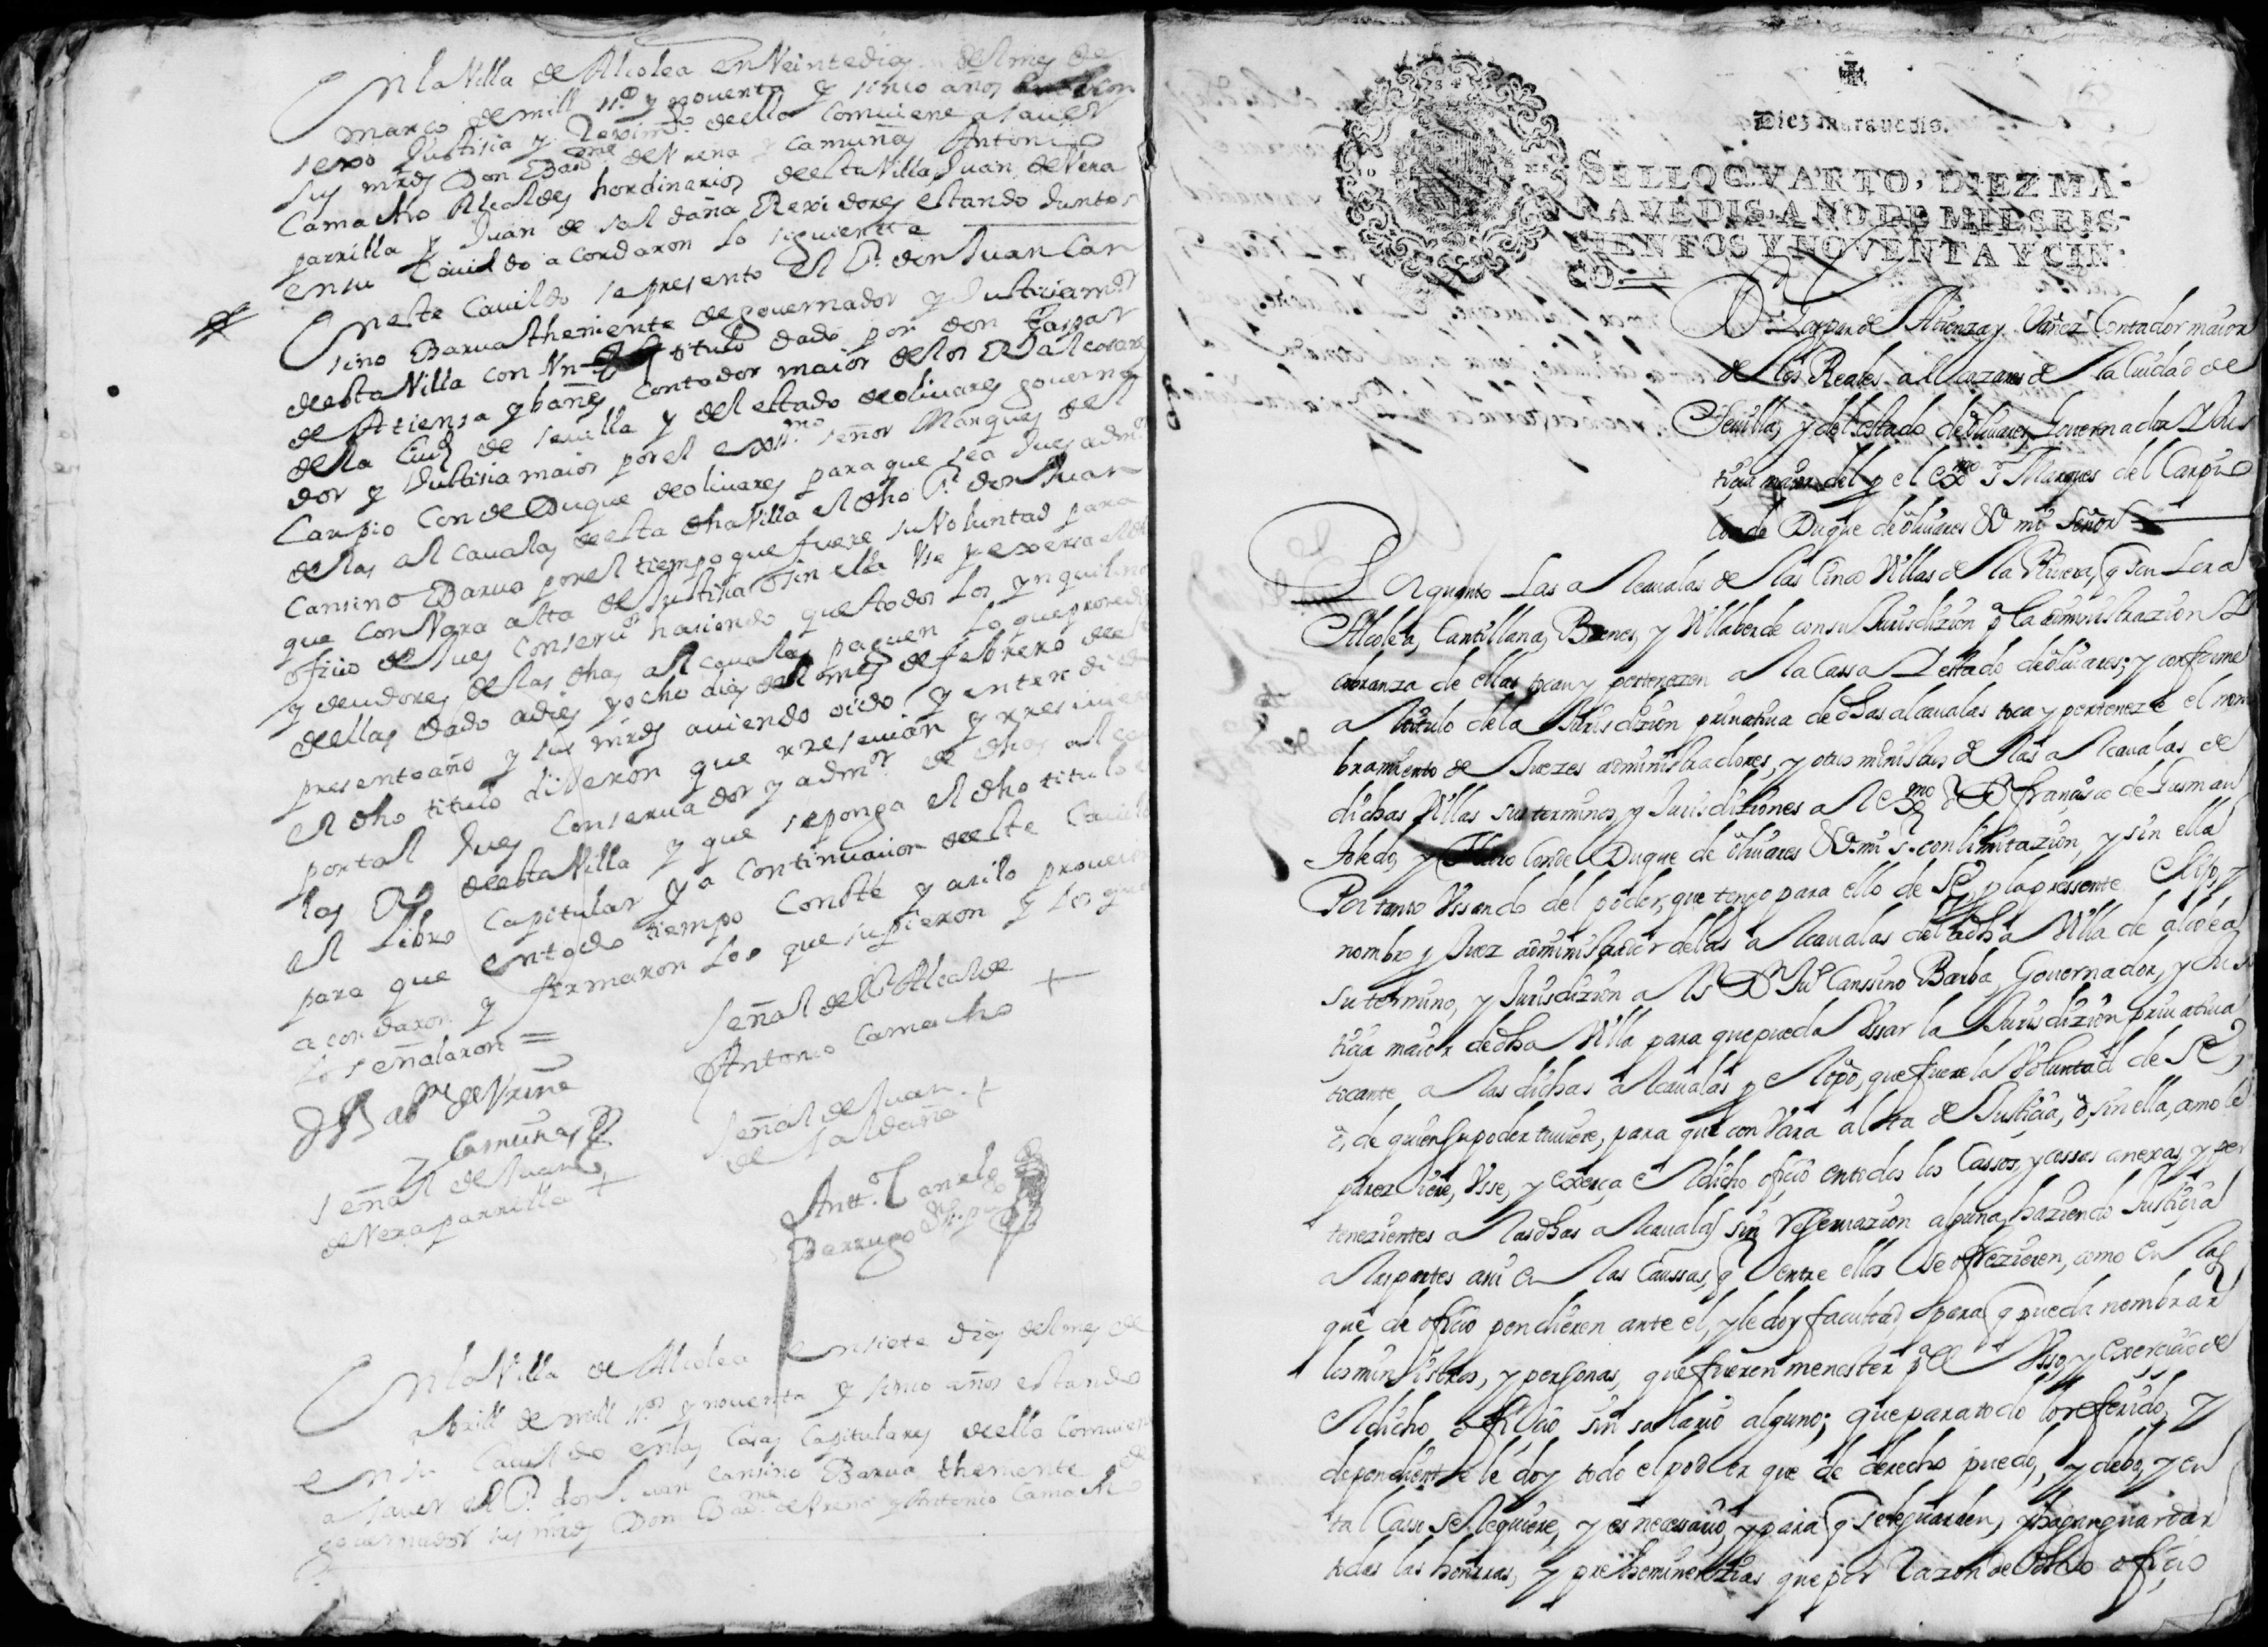 En la Villa de Alcolea en Veinte dias del mes de
março de mill ss.os y nouenta y sinco años
sexo Justisia y Reximto. della Comuiene a sauer
sus mrds Don Barme. de Vrena y Camuñas Antonio
Camacho Alcaldes hordinarios desta Villa Juan de Vera
parrilla y Juan de saldaña Rexidores estando Juntos
en su Cauildo acordaron lo siguiente
En este Cauildo se presento el Sr. don Juan Can
sino Barua theniente de gouernador y Justisia mor
desta Villa con Vn titulo dado por don Gaspar
de Atiensa y bañes Contador maior de los Rs alcasare
de la Ciud de seuilla y del estado de oliuares gouerna
dor y Justisia maior por el exmo. señor Marques del
Carpio Conde Duque de oliuares para que sea Jues admr
de las alcaualas desta dha Villa el dho Sr. don Juan
Cansino Barua por el tiempo que fuere su Voluntad para
que con Vara alta de Justisia o sin ella Vse y exersa el dho
oficio de Jues Conseruor hasiendo que todos los ynquilinos
y deudores de las dhas alcaualas paguen lo que prosedi
dellas dado a dies y ocho dias del mes de febrero deel
presente año y sus mrds auiendo oido y entendido
el dho titulo dixeron que rreseuian y rresiuieron
por tal Jues Conseruador y admor. de dhas alcaua
las desta Villa y que se ponga el dho titulo en
el libro Capitular y a continuasion deste Cauildo
para que en todo tiempo Conste y asilo proueieron
acordaron y firmaron los que supieron y los que no
lo señalaron =
señal del Sr. Alcalde
Antonio Camacho +
D Barme de Vrena
y Camuñas
señal de Juan
de Saldaña +
señal de Juan
de Vera parrilla +
Antto. Canelo
Barrugo
En la Villa de Alcolea en siete dias del mes de
abrill de mill ss.os y nouenta y sinco años estando
en su Cauildo en las Casas Capitulares della Comuiene
a sauer el Sr. don Juan Cansino Barua theniente de
gouernador sus mrds Don Barme. de Vrena y Antonio Camacho
Diez marauedis.
SELLO QVARTO, DIEZ MA-
RAVEDIS, AÑO DE MIL SEIS-
CIENTOS Y NOVENTA Y CIN-
CO.
Dn Gaspar de Atienza y Vañez Contador maior
de los Reales alcazares de la Ciudad de
Seuilla, y del estado de oliuares Gouernador y Jus
ticia maior del p el exmo Sr Marques del Carpio
Conde Duque de oliuares &a mi señor
Por quanto las alcaualas de las Cinco Villas de la Riuera, q son Lora
Alcolea, Cantillana, Brenes, y Villaberde con su Jurisdizion pa la administrazion y
cobranza de ellas tocan y pertenezen a la Cassa y estado de oliuares; y conforme
a titulo de la Jurisdizion priuatiua de dhas alcaualas toca y pertenezе el nom
bramiento de Juezes administradores, y otros ministros de las alcaualas de
dichas Villas sus terminos, y Jurisdiziones al exmo Sr Dn francisco de Gusman
Toledo, y Haro Conde Duque de oliuares &a mi s. con limitazion, y sin ella
Por tanto Vssando del poder, que tengo para ello de Se, p la pressente elijo, y
nombro p Juez administrador de las alcaualas de la dha Villa de alcolea
su termino, y Jurisdizion al Sr Dn Jua Canssino Barba, Gouernador, y Jus
ticia maior de dha Villa para que pueda Vssar la Jurisdizion priuatiua
tocante a las dichas alcaualas p el tipo, que fuere la Voluntad de Se,
o, de quien su poder tuuiere, para que con Vara alta de Justicia, o, sin ella, como le
pareziere, Vsse, y exerça el dicho oficio en todos los Cassos, y cossas anexas, y per
tenezientes a las dhas alcaualas sin reseruazion alguna, haziendo Justicia
a las partes assi en las Caussas, q entre ellos se ofrezieren, como en las
que de oficio pendieren ante el, y le doy facultad para q pueda nombrar
los ministros, y personas, que fueren menester pa el Vsso, y exercicio de
el dicho oficio sin salario alguno; que para todo lo referido, y
dependiente le doy todo el poder que de derecho puedo, y debo, y en
tal Casso se requiere, y es necessario, y para q se le guarden, y hagan guardar
todas las honrras, y preheminenzias que por razon de dicho oficio